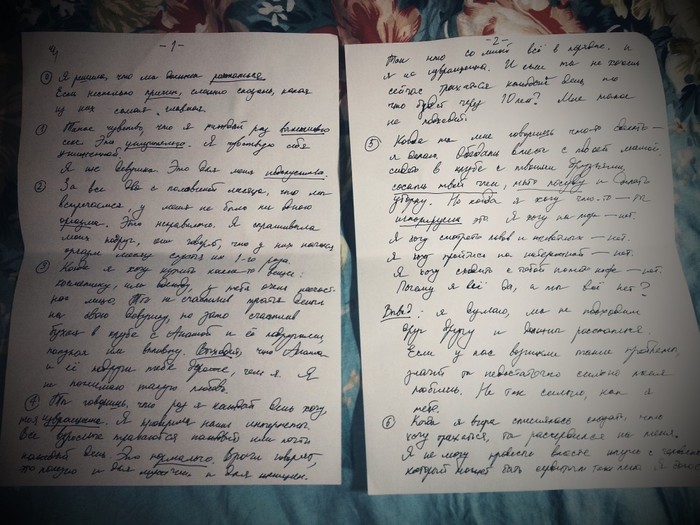 - 1 -
⓪ Я решила, что мы должны расстаться
Есть несколько причин, сложно сказать, какая
из них самая главная.
① Такое чувство, что я каждый раз вымаливаю
секс. Это унизительно. Я чувствую себя
униженной.
Я же девушка. Это для меня недопустимо.
② За все два с половиной месяца, что мы
встречаемся, у меня не было ни одного
оргазма. Это неправильно. Я спрашивала
моих подруг, они говорят, что у них
оргазм с 1-го раза.
③ Когда я хочу купить какие-то вещи:
косметику, или одежду, у тебя очень несчаст-
ное лицо. Ты не счастлив тратя деньги
на свою девушку, но зато счастлив
бухать в клубе с и её подругами,
покупая им выпивку. Выходит, что
и её подруги тебе дороже, чем я. Я
не понимаю такую любовь.
④ Ты говоришь, что раз я каждый день хочу
то я извращенка. Я проверила наш интернет.
Все взрослые трахаются каждый или почти
каждый день. Это нормально. Врачи говорят,
это полезно и для мужчин и для женщин.
- 2 -
Так что со мной всё в порядке, и
я не извращенка. И если ты не хочешь
сейчас трахаться каждый день, то
что будет через 10 лет? Мне такое
не подходит.
⑤ Когда ты мне говоришь что-то делать —
я делаю. Обедать вместе с твоей мамой,
сидеть в клубе с твоими друзьями,
сосать твой член, мыть посуду и делать
уборку. Но когда я хочу что-то — ты
игнорируешь это. Я хочу на море — нет.
Я хочу смотреть львов и животных — нет.
Я хочу пройтись по набережной — нет.
Я хочу сходить с тобой попить кофе — нет.
Почему я всё да, а ты всё нет?
Вывод: я думаю, мы не подходим
друг другу и должны расстаться.
Если у нас возникли такие проблемы,
значит ты недостаточно сильно меня
любишь. Не так сильно, как я
тебя.
⑥ Когда я вчера сказать, что
хочу трахаться, ты рассердился на меня.
Я не могу провести вместе жизнь с человеком,
который может быть Я